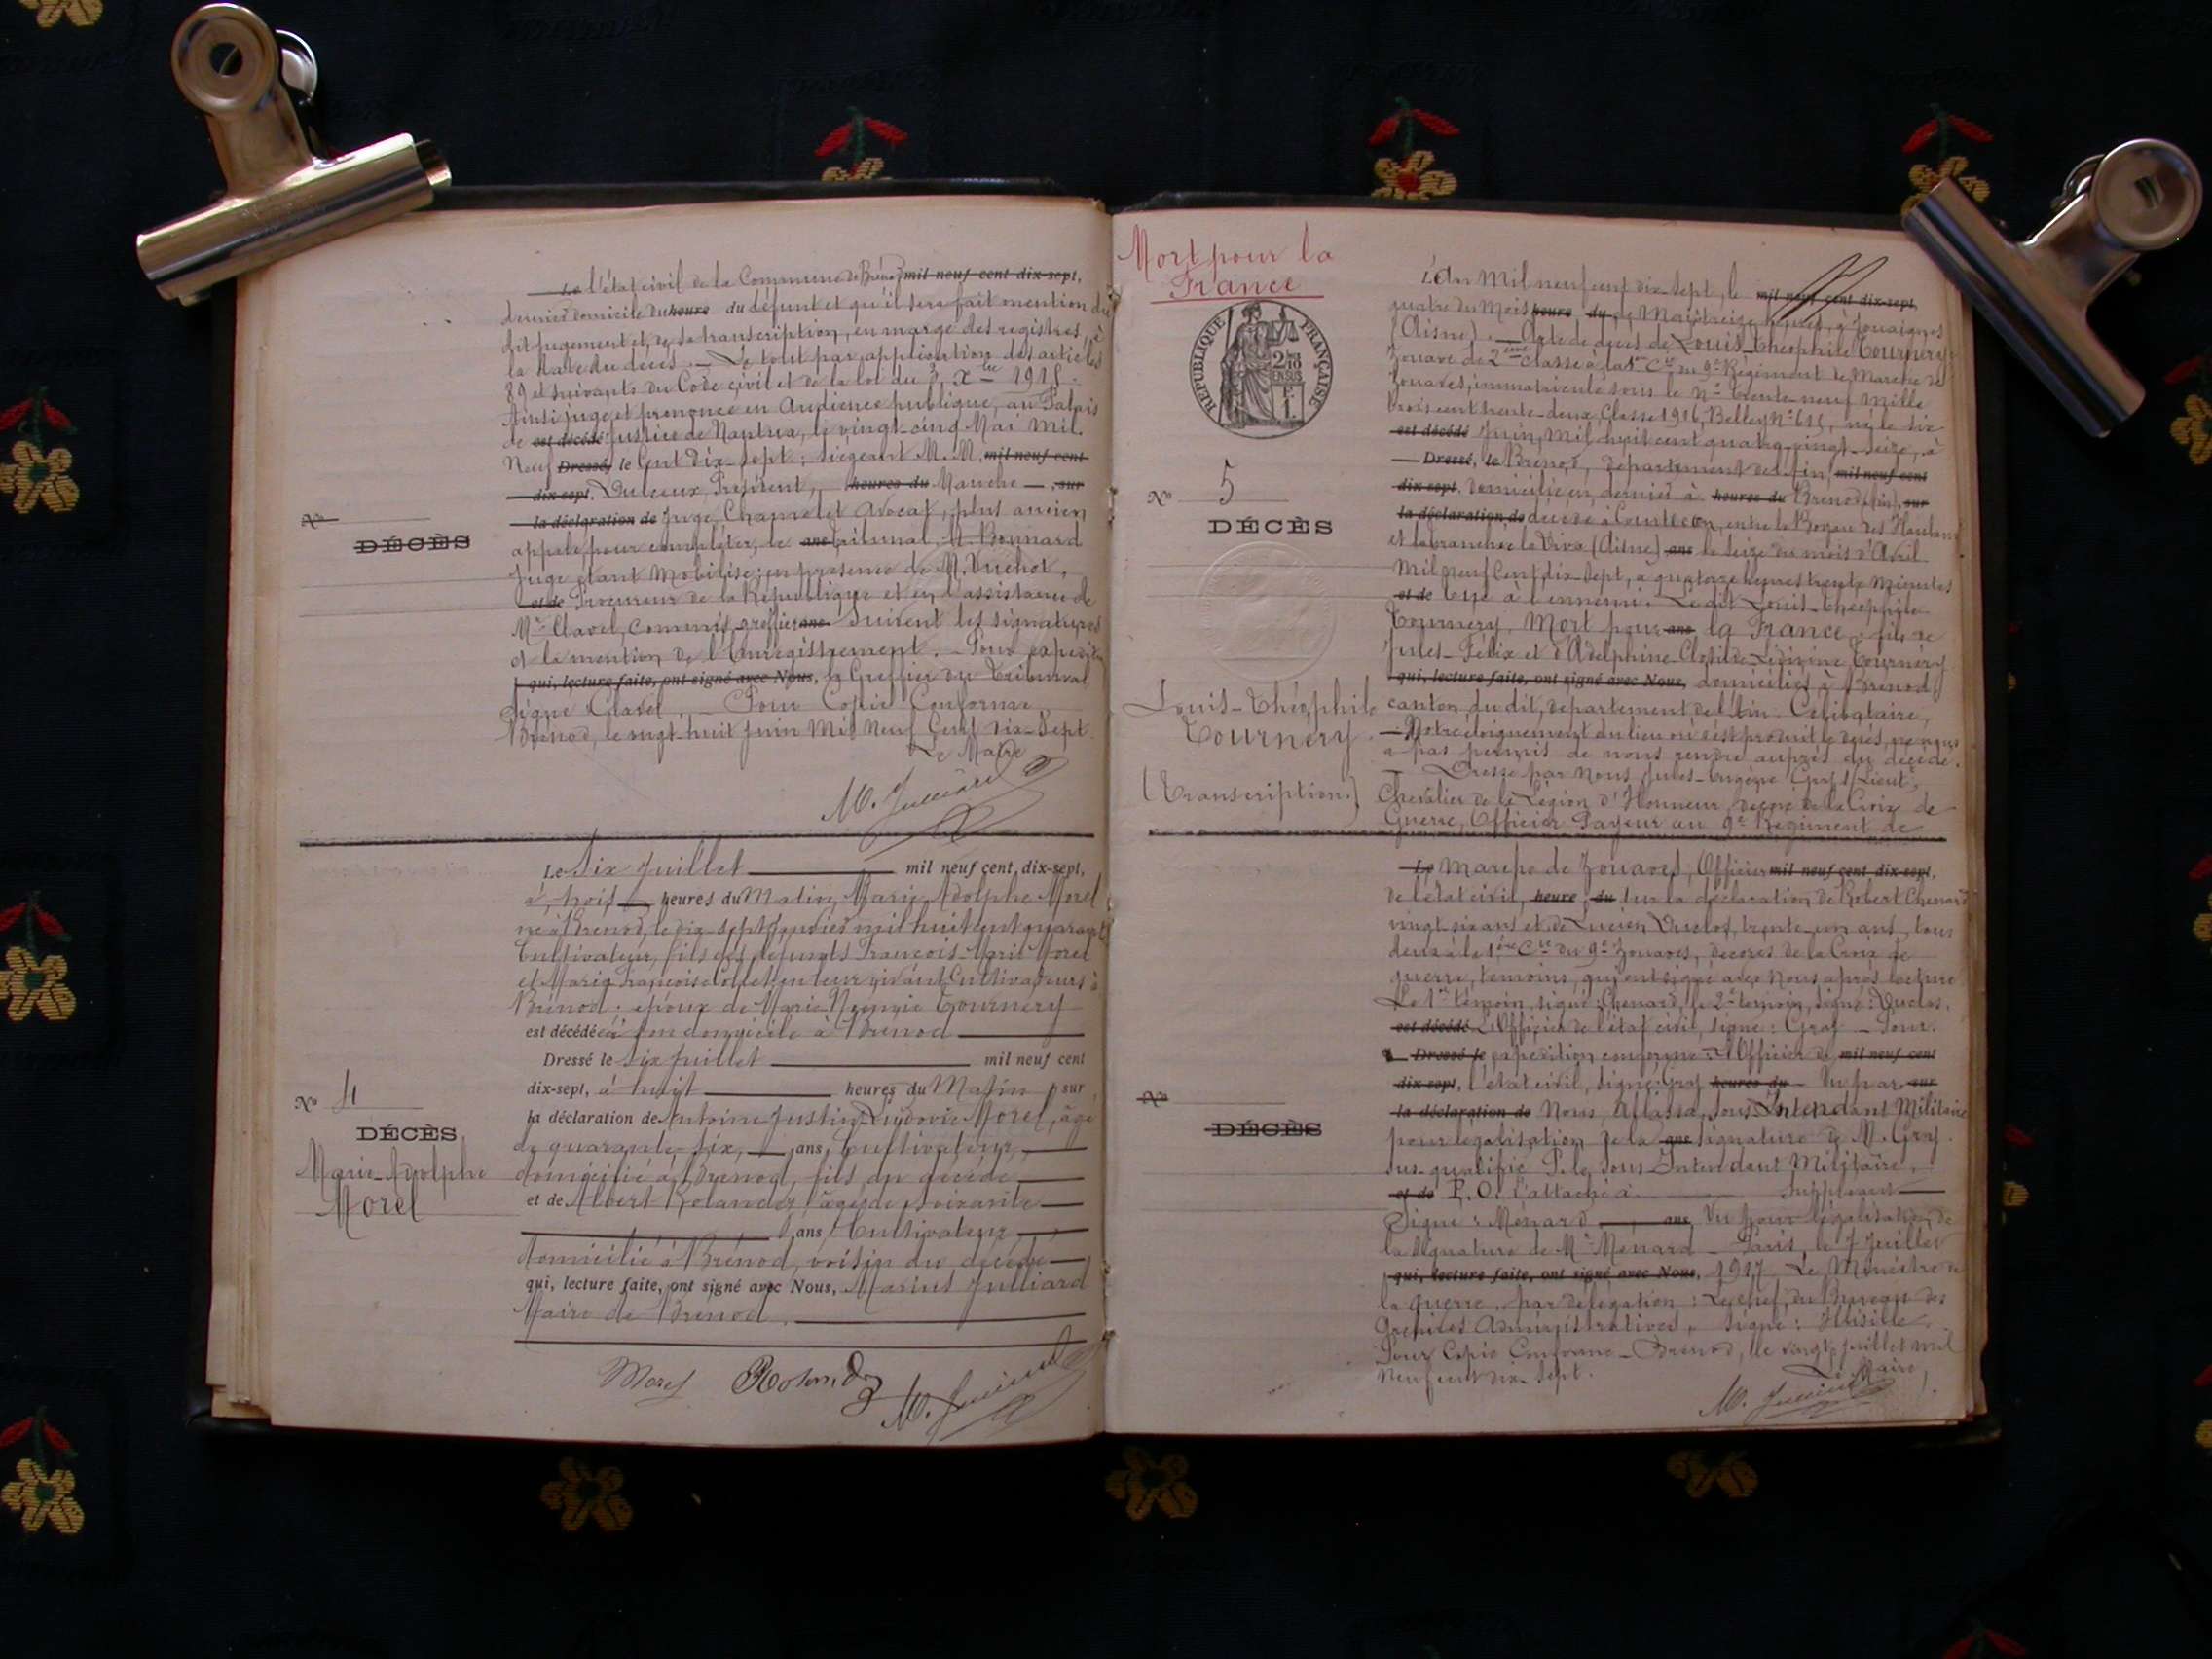 Le l'état civil de la Commune de Brénod mil neuf cent dix-sept,
dernier domicile du heure du défunt et qu'il sera fait mention du
dit jugement et de sa transcription, en marge des registres, à
la date du décès. — Le tout par application des articles
89 et suivants du Code civil et de la loi du 3 Xbre 1915.
Ainsi jugé et prononcé en Audience publique, au Palais
de est décédé Justice de Nantua, le vingt-cinq Mai Mil
Neuf Dressé, le Cent Dix-Sept; siégeant M.M. mil neuf cent
dix-sept. Président, heures du — sur
la déclaration de Juge, Avocat, plus ancien
appelé pour compléter, le ans tribunal, M. Bonnard
Juge étant Mobilisé; en présence de M. Vuchot,
et de Procureur de la République et en l'assistance de
Mr Clavel, Commis greffier ans Suivent les signatures
et la mention de l'Enregistrement. — Pour expédition
qui, lecture faite, ont signé avec Nous, le Greffier du Tribunal
Signé Clavel. — Pour Copie Conforme
Brénod, le vingt-huit Juin Mil Neuf Cent Dix-Sept.
Le Maire
N°
DÉCÈS
Le Six Juillet mil neuf cent dix-sept,
à trois heures du Matin, Marie Adolphe Morel
né à Brénod, le dix-sept Janvier mil huit cent quarante
Cultivateur, fils des défunts François-Marie Morel
et Marie Françoise Collet en leur vivant Cultivateurs à
Brénod. époux de Marie Tournery
est décédé à son domicile à Brénod
Dressé le Six Juillet mil neuf cent
dix-sept, à huit heures du Matin, sur
la déclaration de Antoine Justin Ludovic Morel, âgé
de quarante-six, ans, Cultivateur,
domicilié à Brénod, fils du décédé
et de Albert Rolandez, âgé de soixante
ans, Cultivateur
domicilié à Brénod, voisin du décédé
qui, lecture faite, ont signé avec Nous, Marius Julliard
Maire de Brénod.
N° 4
DÉCÈS
Marie-Adolphe
Morel
Morel Rolandez M. Julliard
Mort pour la
France
RÉPUBLIQUE FRANÇAISE
N° 5
DÉCÈS
Louis-Théophile
Tournery.
(Transcription.)
L'An Mil neuf cent dix-sept, le mil neuf cent dix-sept,
quatre du Mois heure du de Mai, treize heures, à Jouaignes
(Aisne). — Acte de décès de Louis-Théophile Tournery
Zouave de 2ème Classe à la 1re Cie du 9e Régiment de Marche de
Zouaves, immatriculé sous le N° trente-neuf mille
trois cent trente-deux, Classe 1916, Belley N° né le six
est décédé Juin, Mil huit cent quatre-vingt-seize, à
Dressé, le Brénod, département de l'Ain, mil neuf cent
dix-sept. domicilié en dernier à heures du Brénod (Ain), sur
la déclaration de décédé à entre le Boyau des
et la branche (Aisne) ans le seize du mois d'Avril
Mil neuf Cent dix-sept, à quatorze heures trente minutes
et de tué à l'ennemi. Le dit Louis-Théophile
Tournery, Mort pour ans la France, fils de
Jules-Félix et d'Adelphine Clotilde Tournery
qui, lecture faite, ont signé avec Nous, domiciliés à Brénod,
canton du dit, département de l'Ain. Célibataire,
— Notre éloignement du lieu où s'est produit le décès, ne nous
a pas permis de nous rendre auprès du décédé.
— Dressé par Nous, Jules-Eugène Graf S/Lieut,
Chevalier de la Légion d'Honneur, décoré de la Croix de
Guerre, Officier Payeur au 9e Régiment de
Le Marche de Zouaves, Officier mil neuf cent dix-sept,
de l'état civil, heure du sur la déclaration de Robert Chenard
vingt six ans et de Lucien Duclos, trente-un ans, tous
deux à la 1ère Cie du 9e Zouaves, décorés de la Croix de
guerre, témoins, qui ont signé avec Nous après lecture
Le 1er témoin, signé: Chenard, le 2e témoin, signé: Duclos.
est décédé L'Officier de l'état civil, signé: Graf — Pour
Dressé le expédition conforme. L'Officier de mil neuf cent
dix-sept, l'état civil, signé: Graf heures du — Vu par sur
la déclaration de Nous, Sous Intendant Militaire
pour légalisation de la ans signature de M. Graf.
sus-qualifié P. le Sous-Intendant Militaire,
et de P.O. l'attaché à suppléant
Signé: Ménard. ans Vu pour légalisation de
la signature de Mr Ménard — Paris, le 7 Juillet
qui, lecture faite, ont signé avec Nous, 1917. Le Ministre de
la guerre, par délégation: Le chef du Bureau des
Archives Administratives. Signé:
Pour Copie Conforme — Brénod, le vingt juillet mil
neuf cent dix-sept.
Le Maire,
M. Julliard
N°
DÉCÈS